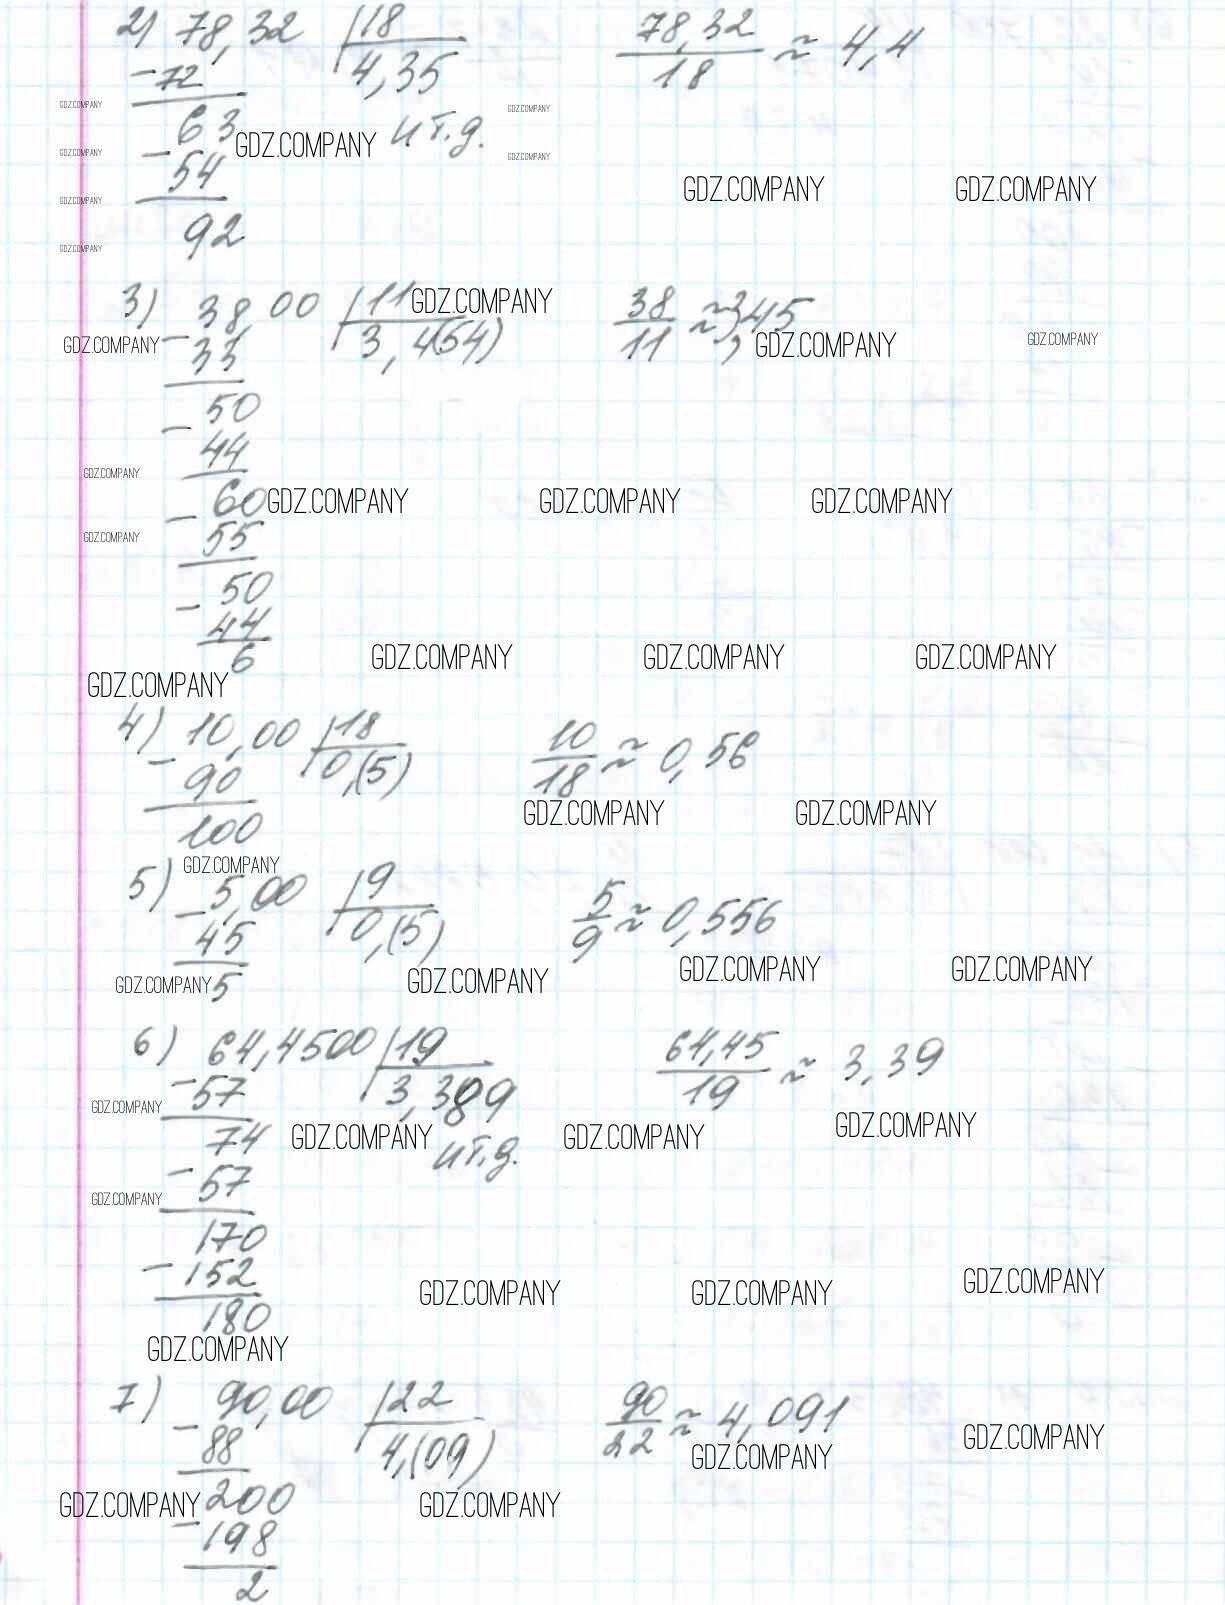 2) 78,32 | 18 78,32/18 ≈ 4,4
- 72 4,35
GDZ.COMPANY GDZ.COMPANY
63 GDZ.COMPANY и т.д.
GDZ.COMPANY - 54 GDZ.COMPANY
GDZ.COMPANY GDZ.COMPANY GDZ.COMPANY
92
GDZ.COMPANY
3) 38,00 | 11 GDZ.COMPANY 38/11 ≈ 3,45
GDZ.COMPANY - 33 3,4(54) GDZ.COMPANY GDZ.COMPANY
50
- 44
GDZ.COMPANY
- 60 GDZ.COMPANY GDZ.COMPANY GDZ.COMPANY
GDZ.COMPANY 55
50
- 44
6 GDZ.COMPANY GDZ.COMPANY GDZ.COMPANY
GDZ.COMPANY
4) 10,00 | 18 10/18 ≈ 0,56
- 90 0,(5)
100 GDZ.COMPANY GDZ.COMPANY
GDZ.COMPANY
5) 5,00 | 9 5/9 ≈ 0,556
- 45 0,(5)
GDZ.COMPANY 5 GDZ.COMPANY GDZ.COMPANY GDZ.COMPANY
6) 64,4500 | 19 64,45/19 ≈ 3,39
- 57 3,389
GDZ.COMPANY
74 GDZ.COMPANY и т.д. GDZ.COMPANY GDZ.COMPANY
GDZ.COMPANY - 57
170
- 152 GDZ.COMPANY GDZ.COMPANY GDZ.COMPANY
180
GDZ.COMPANY
7) 90,00 | 22 90/22 ≈ 4,091
- 88 4,(09) GDZ.COMPANY GDZ.COMPANY
GDZ.COMPANY 200 GDZ.COMPANY
- 198
2